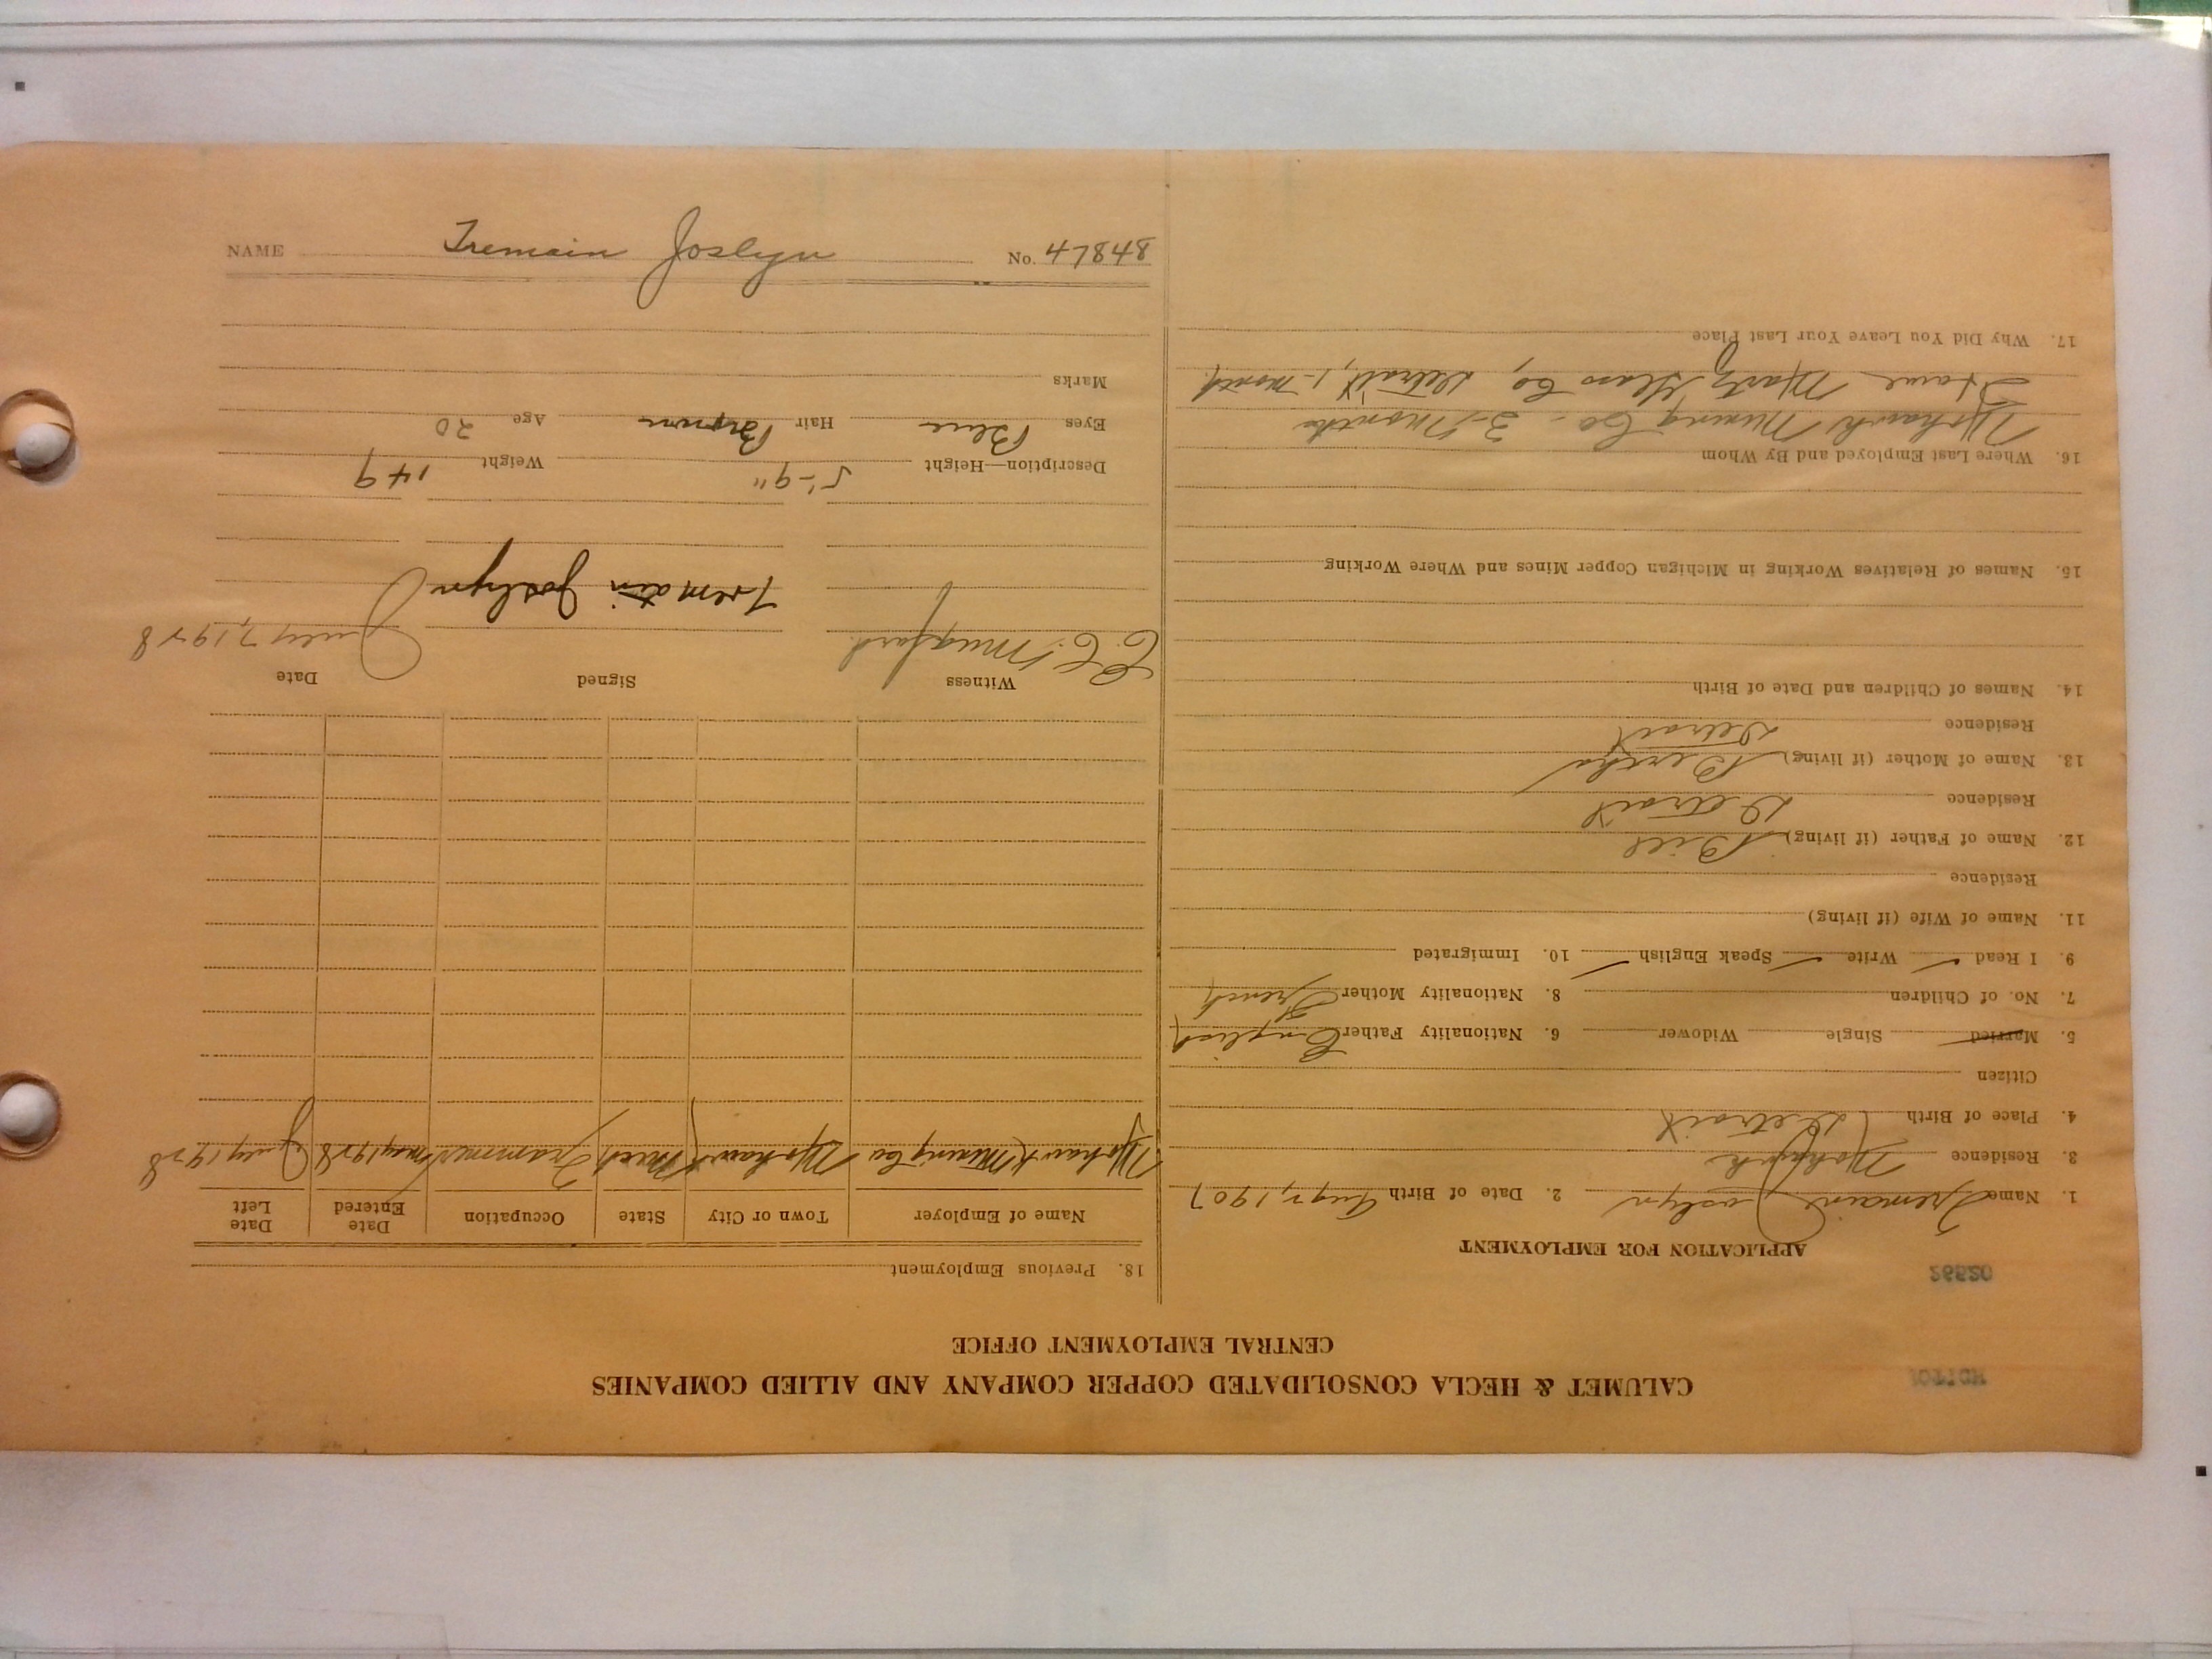 CALUMET & HECLA CONSOLIDATED COPPER COMPANY AND ALLIED COMPANIES
CENTRAL EMPLOYMENT OFFICE
26520
APPLICATION FOR EMPLOYMENT
1. Name Tremain Joslyn 2. Date of Birth Aug 2, 1907
3. Residence Mohawk
4. Place of Birth Detroit
Citizen
5. Married Single Widower 6. Nationality Father English
7. No. of Children 8. Nationality Mother French
9. I Read ✓ Write ✓ Speak English ✓ 10. Immigrated
11. Name of Wife (if living)
Residence
12. Name of Father (if living) Bill
Residence Detroit
13. Name of Mother (if living) Bertha
Residence Detroit
14. Names of Children and Date of Birth
15. Names of Relatives Working in Michigan Copper Mines and Where Working
16. Where Last Employed and By Whom
Mohawk Mining Co - 3-Months
Glass Co, Detroit, 1-month
17. Why Did You Leave Your Last Place
18. Previous Employment
Name of Employer Town or City State Occupation Date Entered Date Left
Mohawk Mining Co Mohawk Mich Trammer May 1928 July 1928
Witness Signed Date
E.C. Mugford Tremain Joslyn July 7, 1928
Description—Height 5'-9" Weight 149
Eyes Blue Hair Brown Age 20
Marks
NAME Tremain Joslyn No. 47848